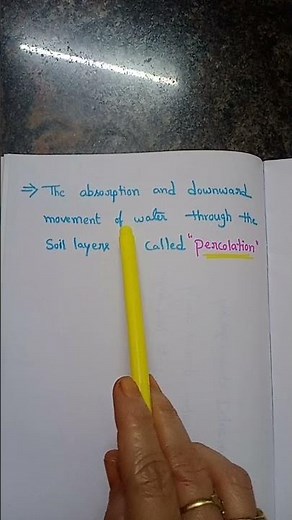 ⇒ The absorption and downward
movement of water through the
Soil layers called "Percolation"